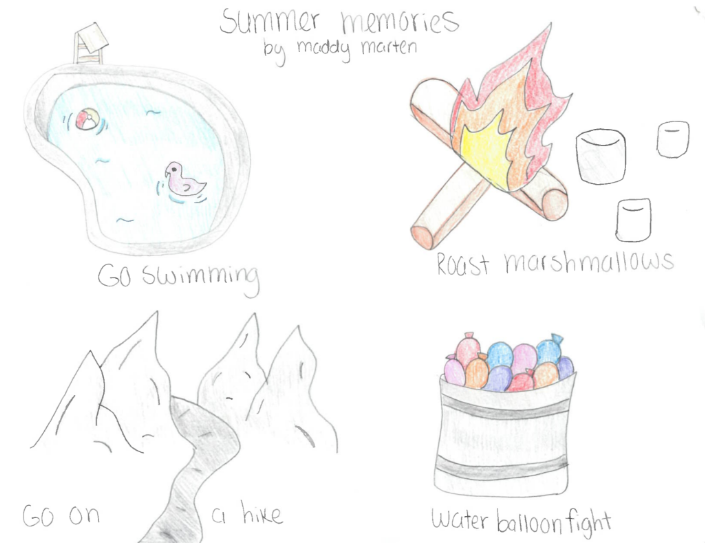 Summer memories
by maddy marten
Go swimming
Roast marshmallows
Go on a hike
Water balloon fight